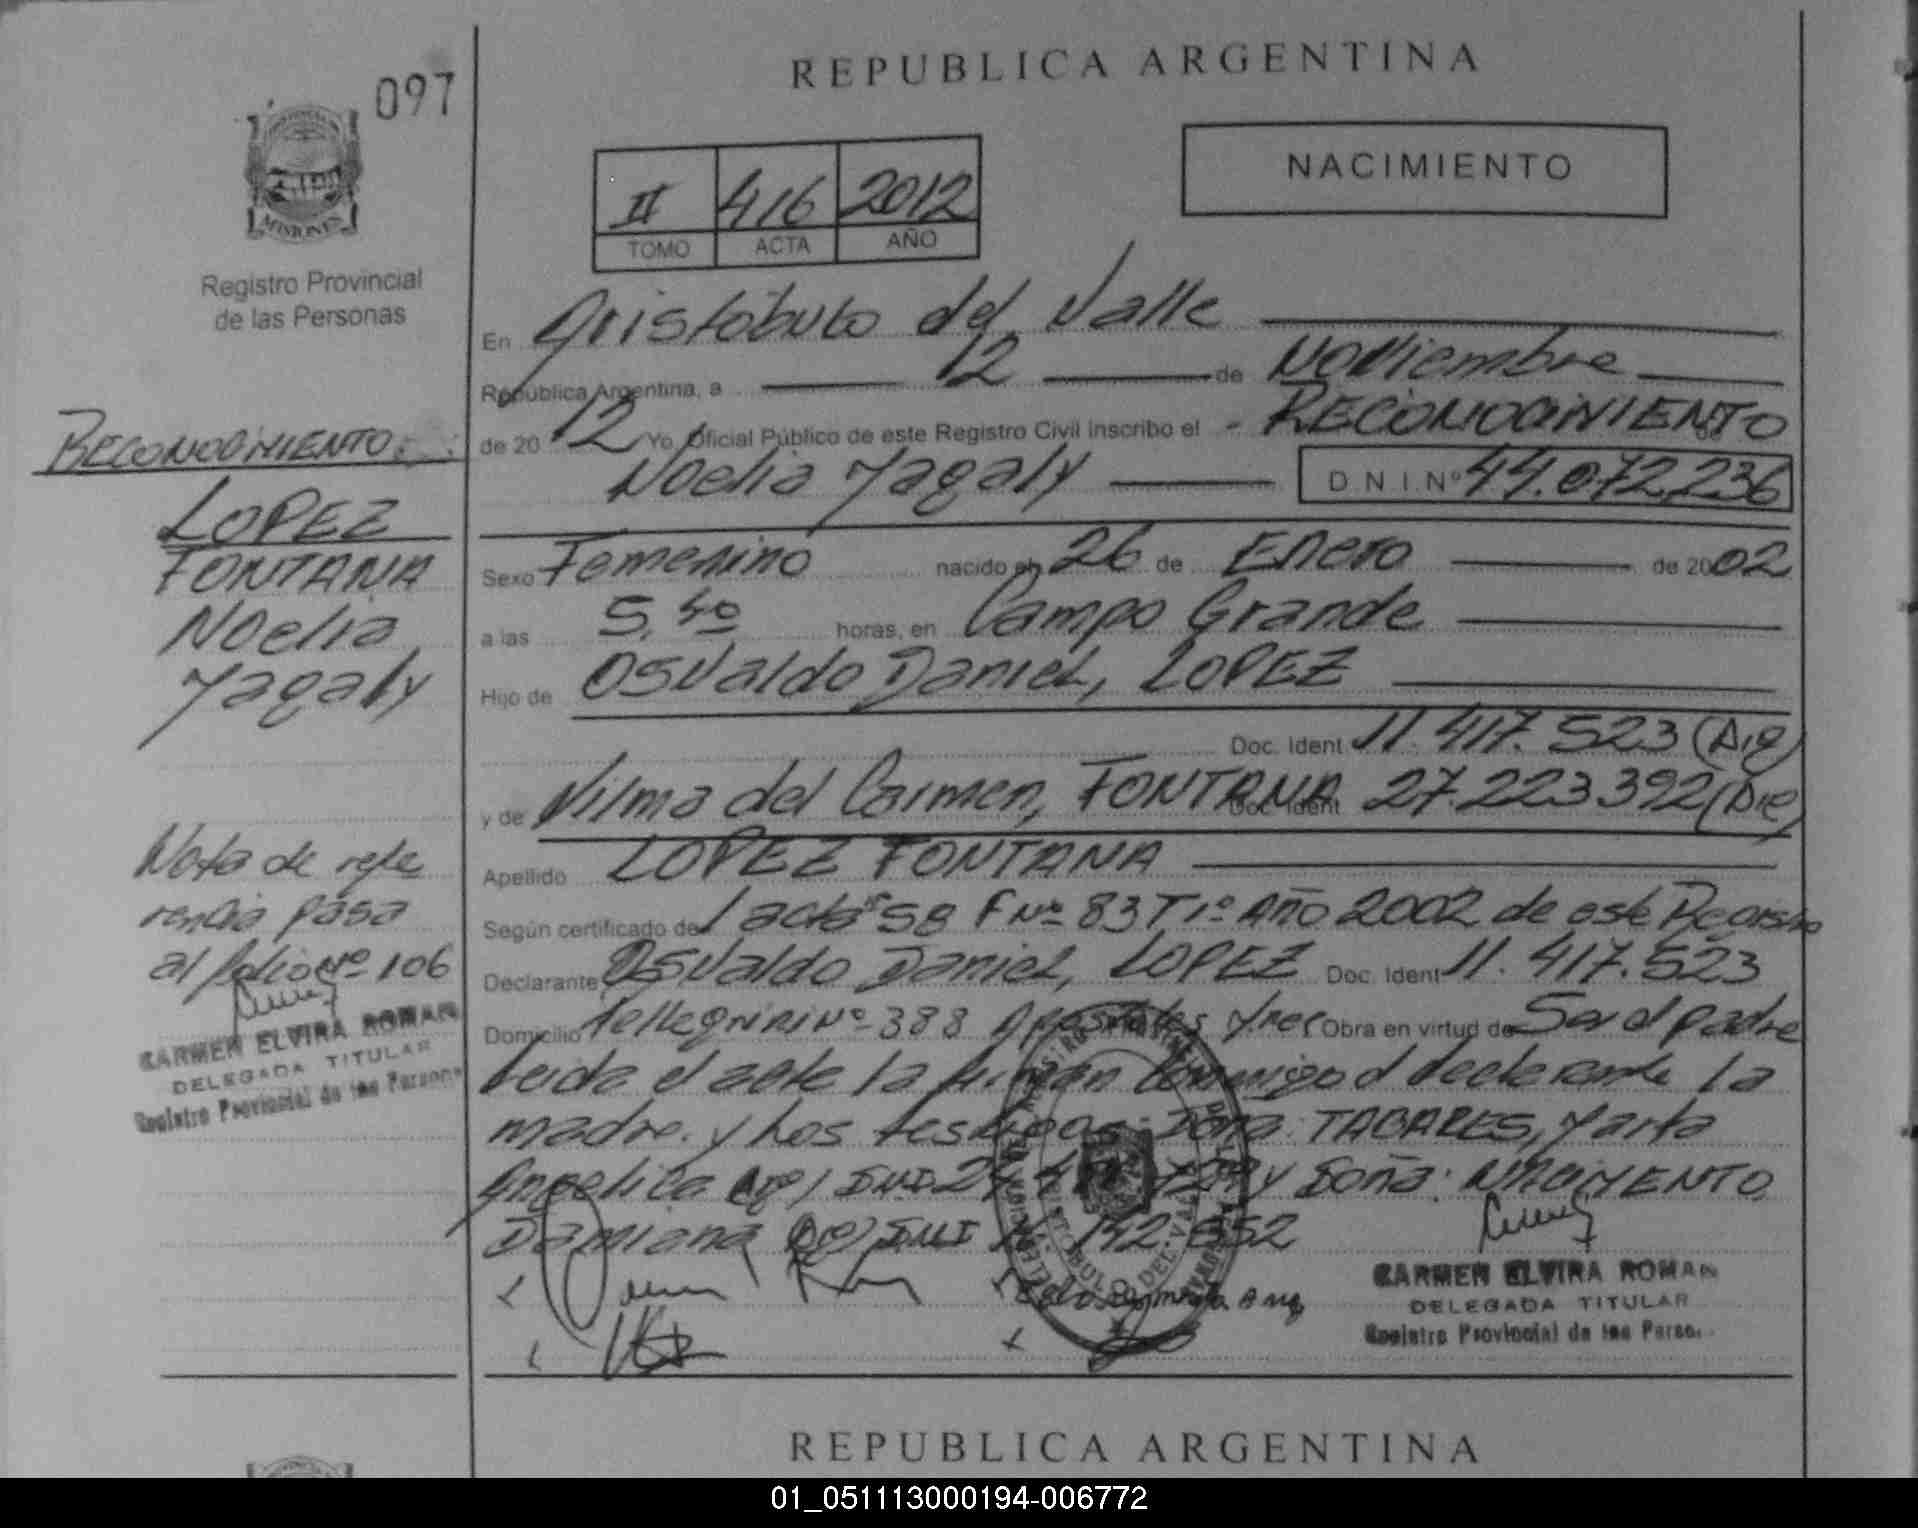 097
REPUBLICA ARGENTINA
MISIONES
Registro Provincial
de las Personas
II 416 2012
TOMO ACTA AÑO
NACIMIENTO
RECONOCIMIENTO:
LOPEZ
FONTANA
Noelia
Magaly
Nota de refe
rencia pasa
al folio Nº 106
CARMEN ELVIRA ROMAN
DELEGADA TITULAR
Registro Provincial de las Personas
En Aristóbulo del Valle
República Argentina, a 12 de Noviembre
de 20 12 Yo Oficial Público de este Registro Civil inscribo el - RECONOCIMIENTO
Noelia Magaly D.N.I. Nº 44.072.236
Sexo Femenino nacido el 26 de Enero de 2002
a las 5,40 horas, en Campo Grande
Hijo de Osvaldo Daniel, LOPEZ
Doc. Ident 11.417.523 (Arg)
y de Vilma del Carmen, FONTANA Doc. Ident 27.223.392 (Arg)
Apellido LOPEZ FONTANA
Según certificado de acta 58 F Nº 83 T 1º Año 2002 de este Registro
Declarante Osvaldo Daniel, LOPEZ Doc. Ident 11.417.523
Domicilio Pellegrini Nº 388 Apostoles Mnes Obra en virtud de Ser el padre
Leida el acta la firman conmigo el declarante la
madre y Los testigos: Doña: TABARES, Marta
Angelica (Arg) DNI 24 y Doña: NACIMENTO
Damiana DNI 142.552
CARMEN ELVIRA ROMAN
DELEGADA TITULAR
Registro Provincial de las Perso
REPUBLICA ARGENTINA
01_051113000194-006772